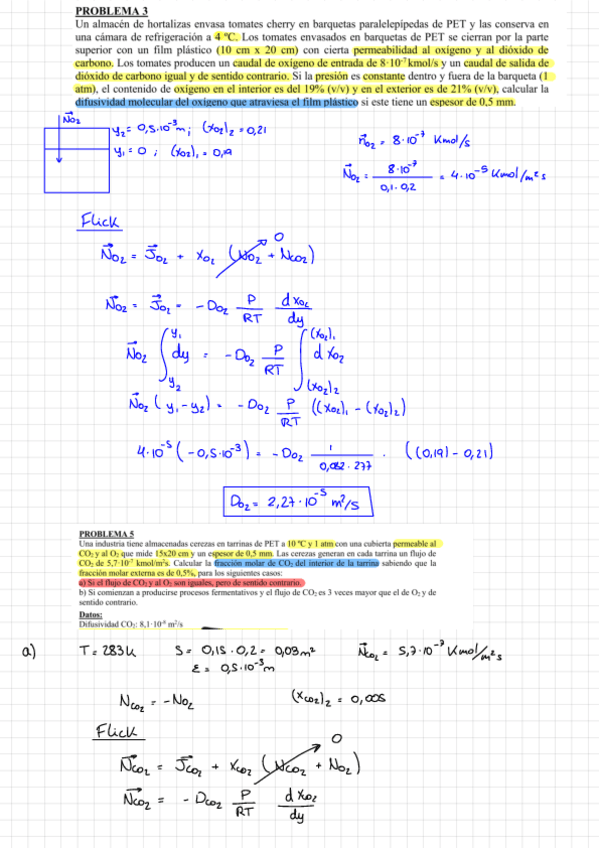 PROBLEMA 3
Un almacén de hortalizas envasa tomates cherry en barquetas paralelepipedas de PET y las conserva en
una cámara de refrigeración a 4 ºC. Los tomates envasados en barquetas de PET se cierran por la parte
superior con un film plástico (10 cm x 20 cm) con cierta permeabilidad al oxígeno y al dióxido de
carbono. Los tomates producen un caudal de oxígeno de entrada de 8·10⁻⁷ kmol/s y un caudal de salida de
dióxido de carbono igual y de sentido contrario. Si la presión es constante dentro y fuera de la barqueta (1
atm), el contenido de oxígeno en el interior es del 19% (v/v) y en el exterior es de 21% (v/v), calcular la
difusividad molecular del oxígeno que atraviesa el film plástico si este tiene un espesor de 0,5 mm.
N⃗O₂
y₂ = 0,5·10⁻³ m ; (xO₂)₂ = 0,21
y₁ = 0 ; (xO₂)₁ = 0,19
ṅO₂ = 8·10⁻⁷ Kmol/s
N⃗O₂ = 8·10⁻⁷ / 0,1·0,2 = 4·10⁻⁵ Kmol/m² s
Flick
N⃗O₂ = J⃗O₂ + xO₂ (NO₂ + NCO₂) 0
N⃗O₂ = J⃗O₂ = - DO₂ P/RT d xO₂/dy
N⃗O₂ ∫ y₂ y₁ dy = - DO₂ P/RT ∫ (xO₂)₂ (xO₂)₁ d xO₂
N⃗O₂ (y₁ - y₂) = - DO₂ P/RT ((xO₂)₁ - (xO₂)₂)
4·10⁻⁵ (-0,5·10⁻³) = - DO₂ 1/0,082·277 · ((0,19) - 0,21)
DO₂ = 2,27·10⁻⁵ m²/s
PROBLEMA 5
Una industria tiene almacenadas cerezas en tarrinas de PET a 10 ºC y 1 atm con una cubierta permeable al
CO₂ y al O₂ que mide 15x20 cm y un espesor de 0,5 mm. Las cerezas generan en cada tarrina un flujo de
CO₂ de 5,7·10⁻⁷ kmol/m²s. Calcular la fracción molar de CO₂ del interior de la tarrina sabiendo que la
fracción molar externa es de 0,5%, para los siguientes casos:
a) Si el flujo de CO₂ y al O₂ son iguales, pero de sentido contrario.
b) Si comienzan a producirse procesos fermentativos y el flujo de CO₂ es 3 veces mayor que el de O₂ y de
sentido contrario.
Datos:
Difusividad CO₂: 8,1·10⁻⁸ m²/s
a) T = 283 K S = 0,15 · 0,2 = 0,03 m² N⃗CO₂ = 5,7·10⁻⁷ Kmol/m² s
ε = 0,5·10⁻³ m
NCO₂ = - NO₂ (xCO₂)₂ = 0,005
Flick
N⃗CO₂ = J⃗CO₂ + xCO₂ (NCO₂ + NO₂) 0
N⃗CO₂ = - DCO₂ P/RT d xCO₂/dy